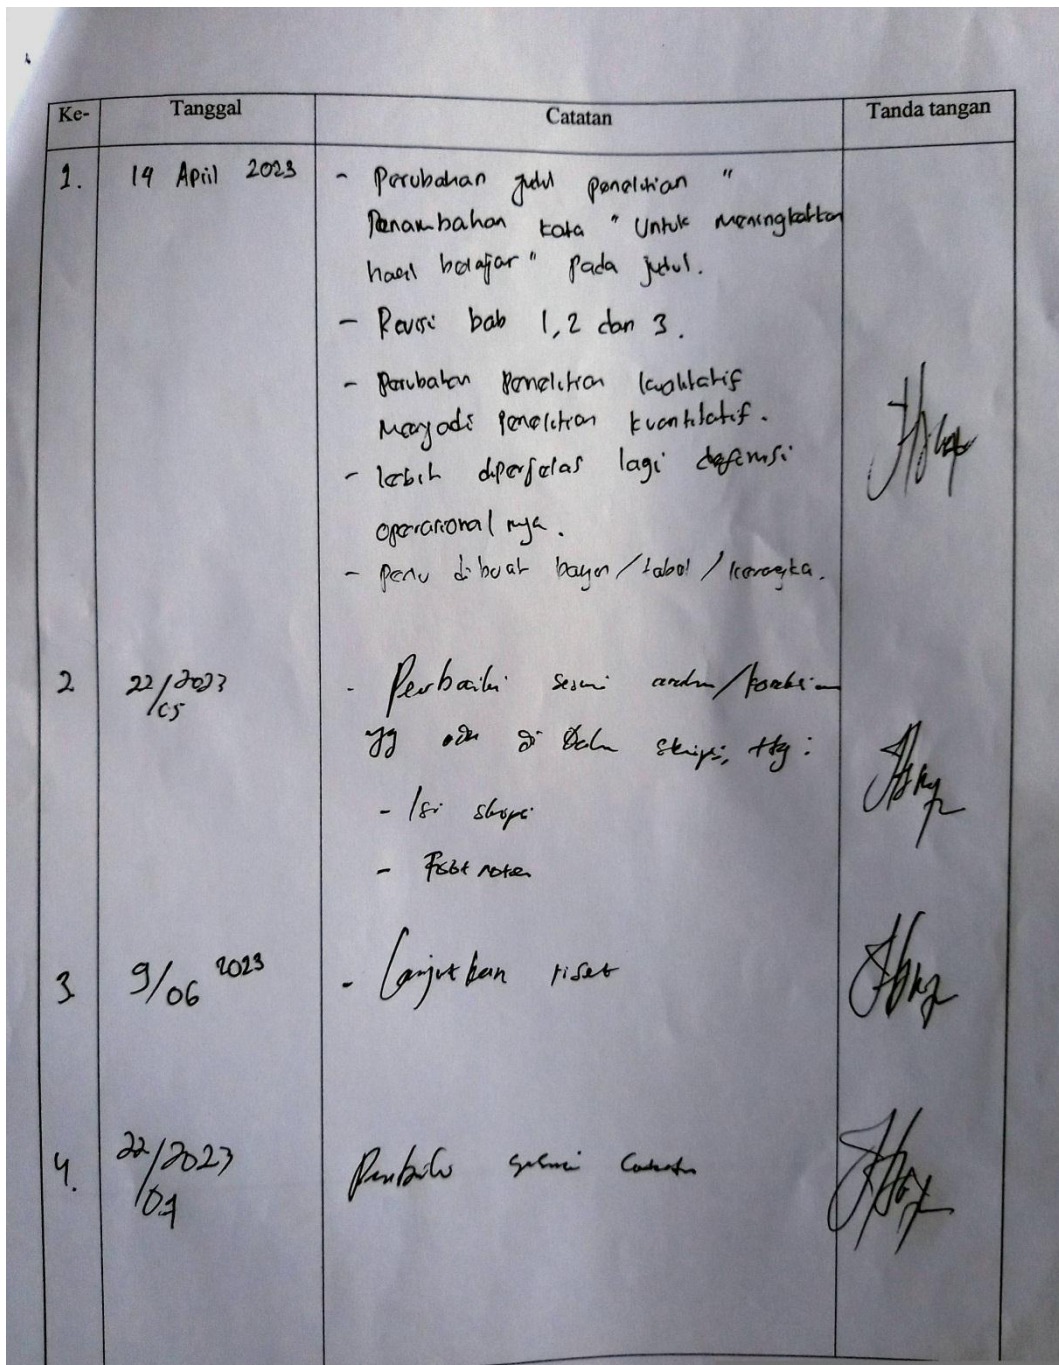 Ke- Tanggal Catatan Tanda tangan
1. 14 April 2023 - Perubahan judul penelitian "
Penambahan kata "Untuk meningkatkan
hasil belajar" pada judul.
- Revisi bab 1, 2 dan 3.
- Perubahan Penelitian kualitatif
menjadi Penelitian kuantitatif.
- lebih diperjelas lagi definisi
operasional nya.
- perlu dibuat bagan/tabel/kerangka.
2 22/2023 - Perbaiki sesuai arahan/koreksian
/05
yg ada di Dalam skripsi, ttg:
- Isi skripsi
- Foot noten
3 9/06 2023 - Lanjutkan riset
4. 22/2023 Perbaiki sesuai Catatan